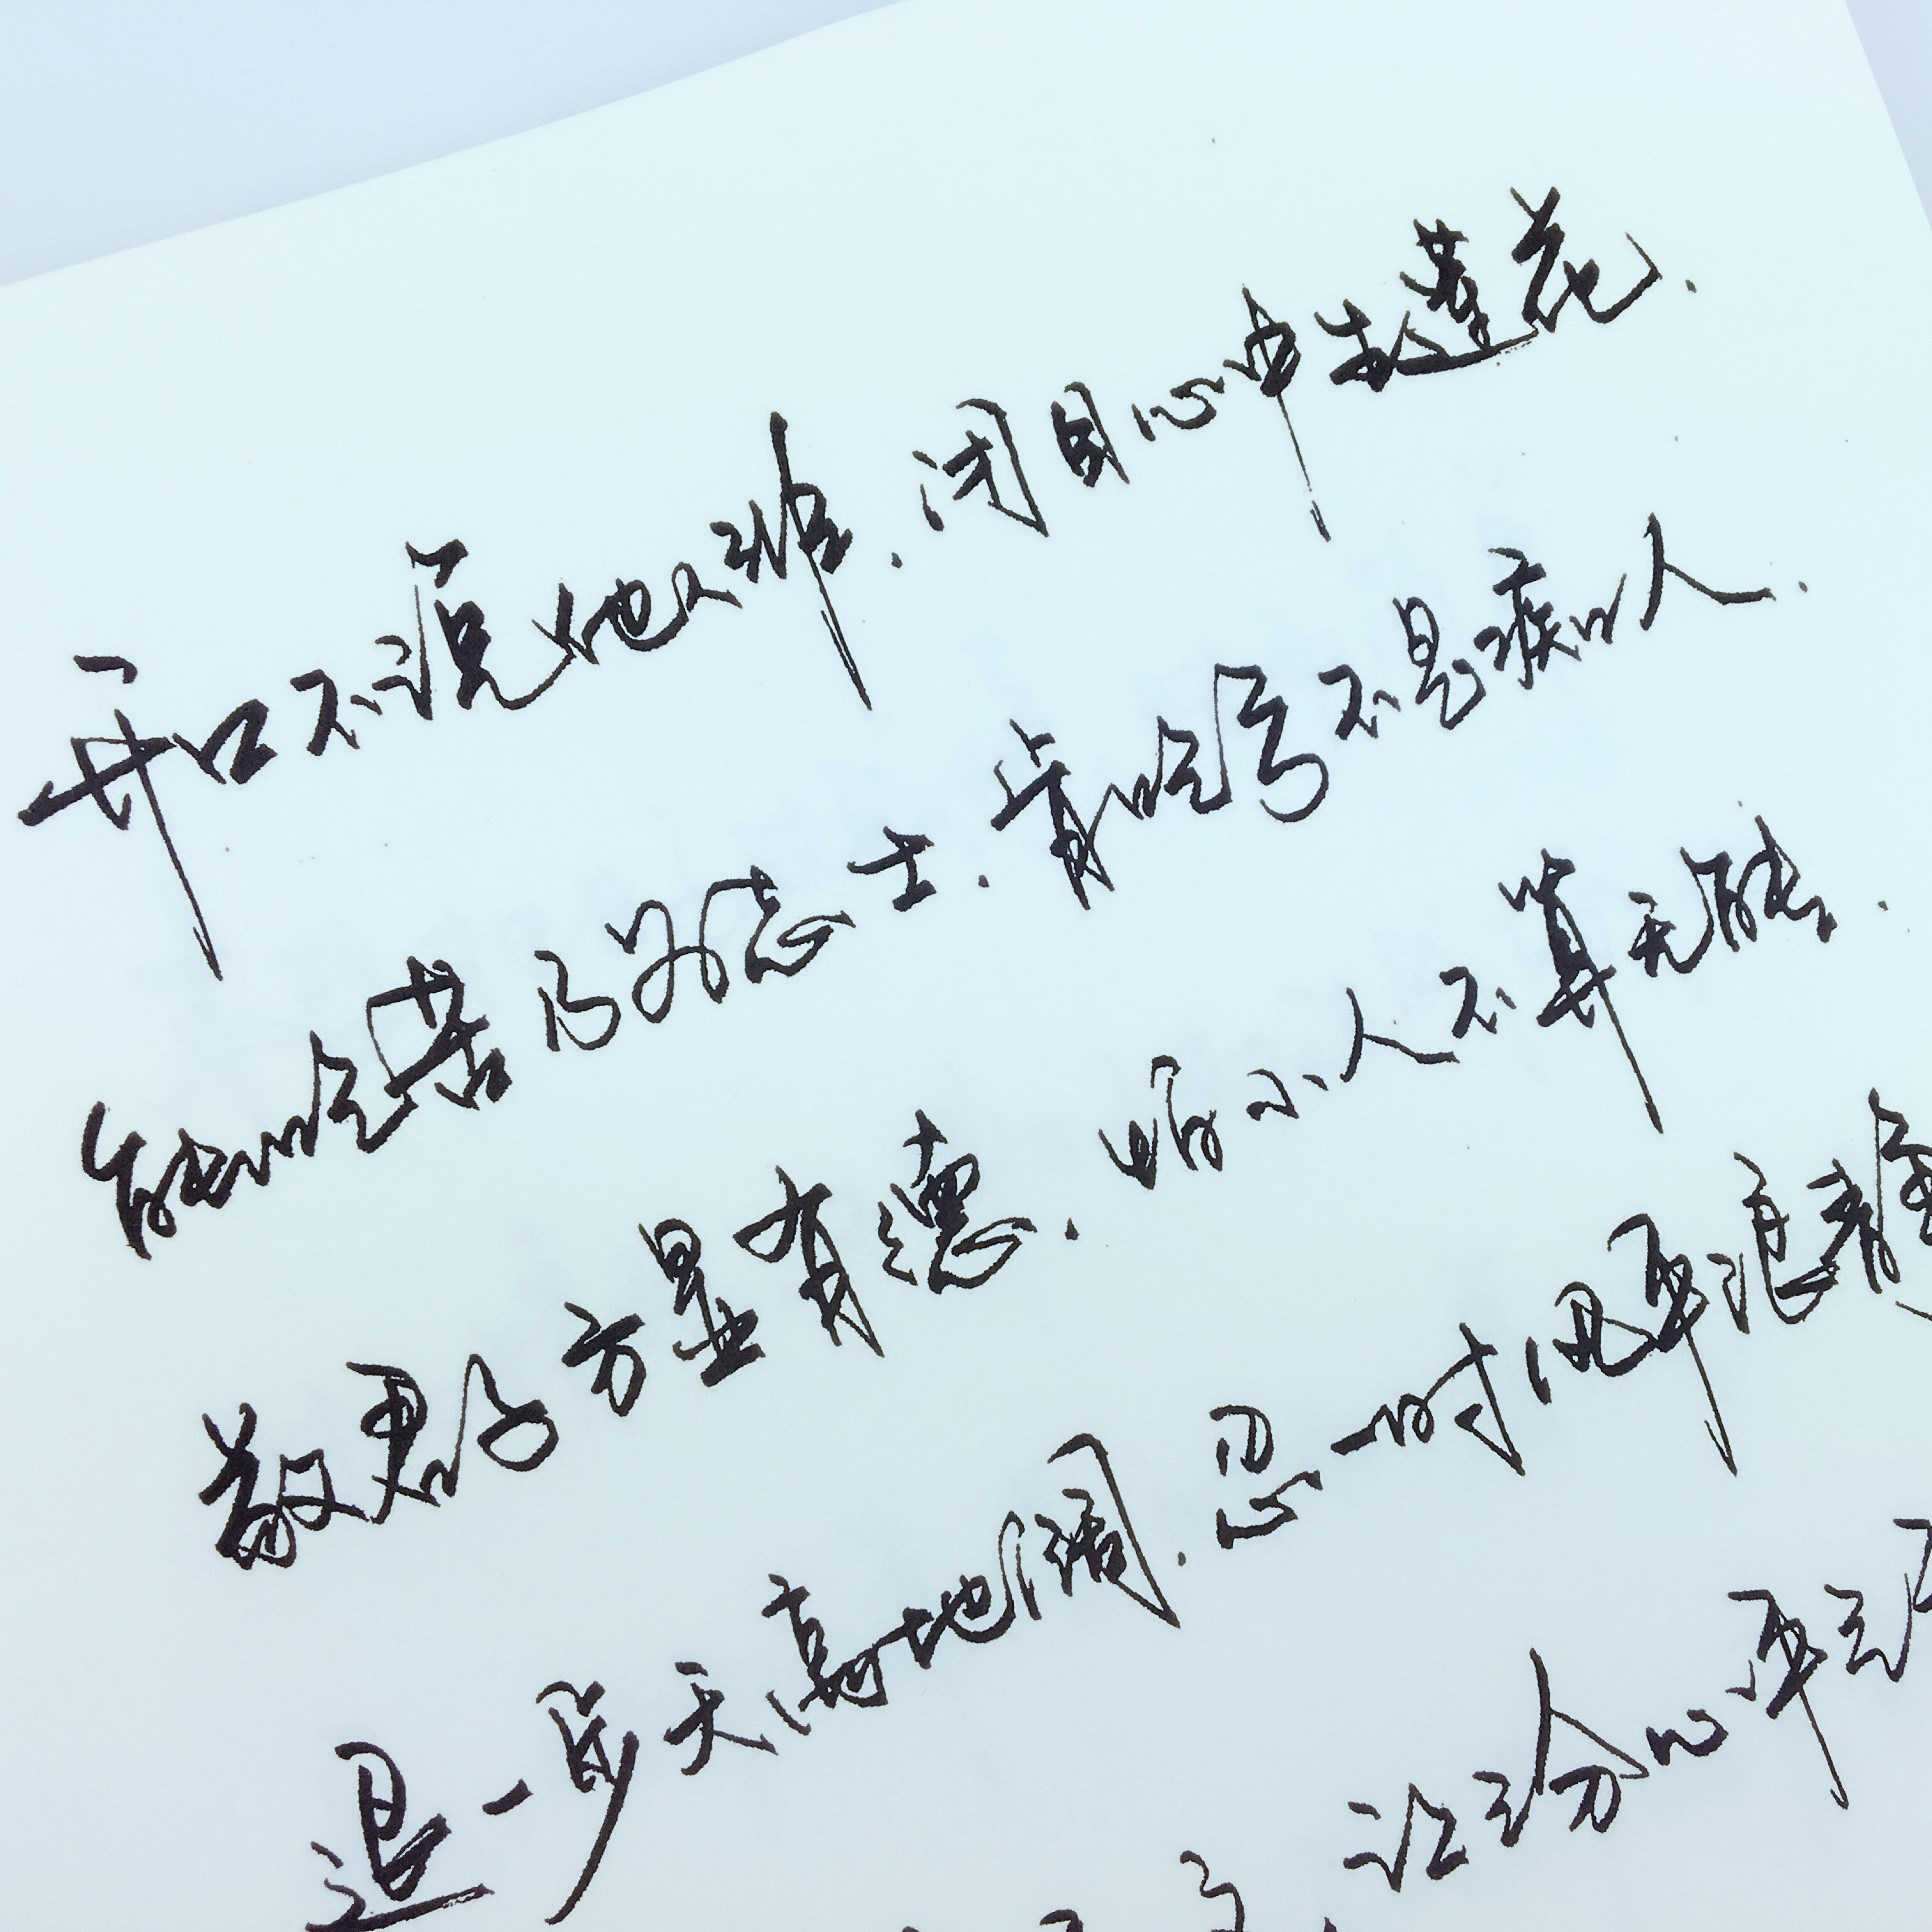 开口不说他人非.闭目心中植莲花.
能吃苦乃为志士.肯吃亏不是痴人.
敬君子方显有德.怕小人不算无能.
退一步天高地阔.忍一时风平浪静
让三分心平气